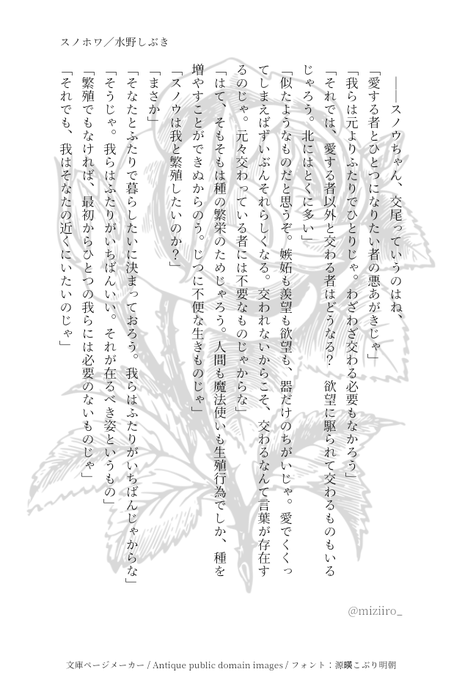 スノホワ／水野しぶき
――スノウちゃん、交尾っていうのはね、
「愛する者とひとつになりたい者の悪あがきじゃ」
「我らは元よりふたりでひとりじゃ。わざわざ交わる必要もなかろう」
「それでは、愛する者以外と交わる者はどうなる？　欲望に駆られて交わるものもいる
じゃろう。北にはとくに多い」
「似たようなものだと思うぞ。嫉妬も羨望も欲望も、器だけのちがいじゃ。愛でくくっ
てしまえばずいぶんそれらしくなる。交われないからこそ、交わるなんて言葉が存在す
るのじゃ。元々交わっている者には不要なものじゃからな」
「はて、そもそもは種の繁栄のためじゃろう。人間も魔法使いも生殖行為でしか、種を
増やすことができぬからのう。じつに不便な生きものじゃ」
「スノウは我と繁殖したいのか？」
「まさか」
「そなたとふたりで暮らしたいに決まっておろう。我らはふたりがいちばんじゃからな」
「そうじゃ。我らはふたりがいちばんいい。それが在るべき姿というもの」
「繁殖でもなければ、最初からひとつの我らには必要のないものじゃ」
「それでも、我はそなたの近くにいたいのじゃ」
@miziiro_
文庫ページメーカー / Antique public domain images / フォント：源暎こぶり明朝